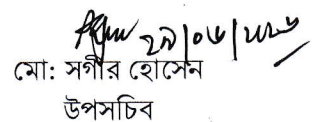 ২৯/০৬/২০২৬
মো: সগীর হোসেন
উপসচিব